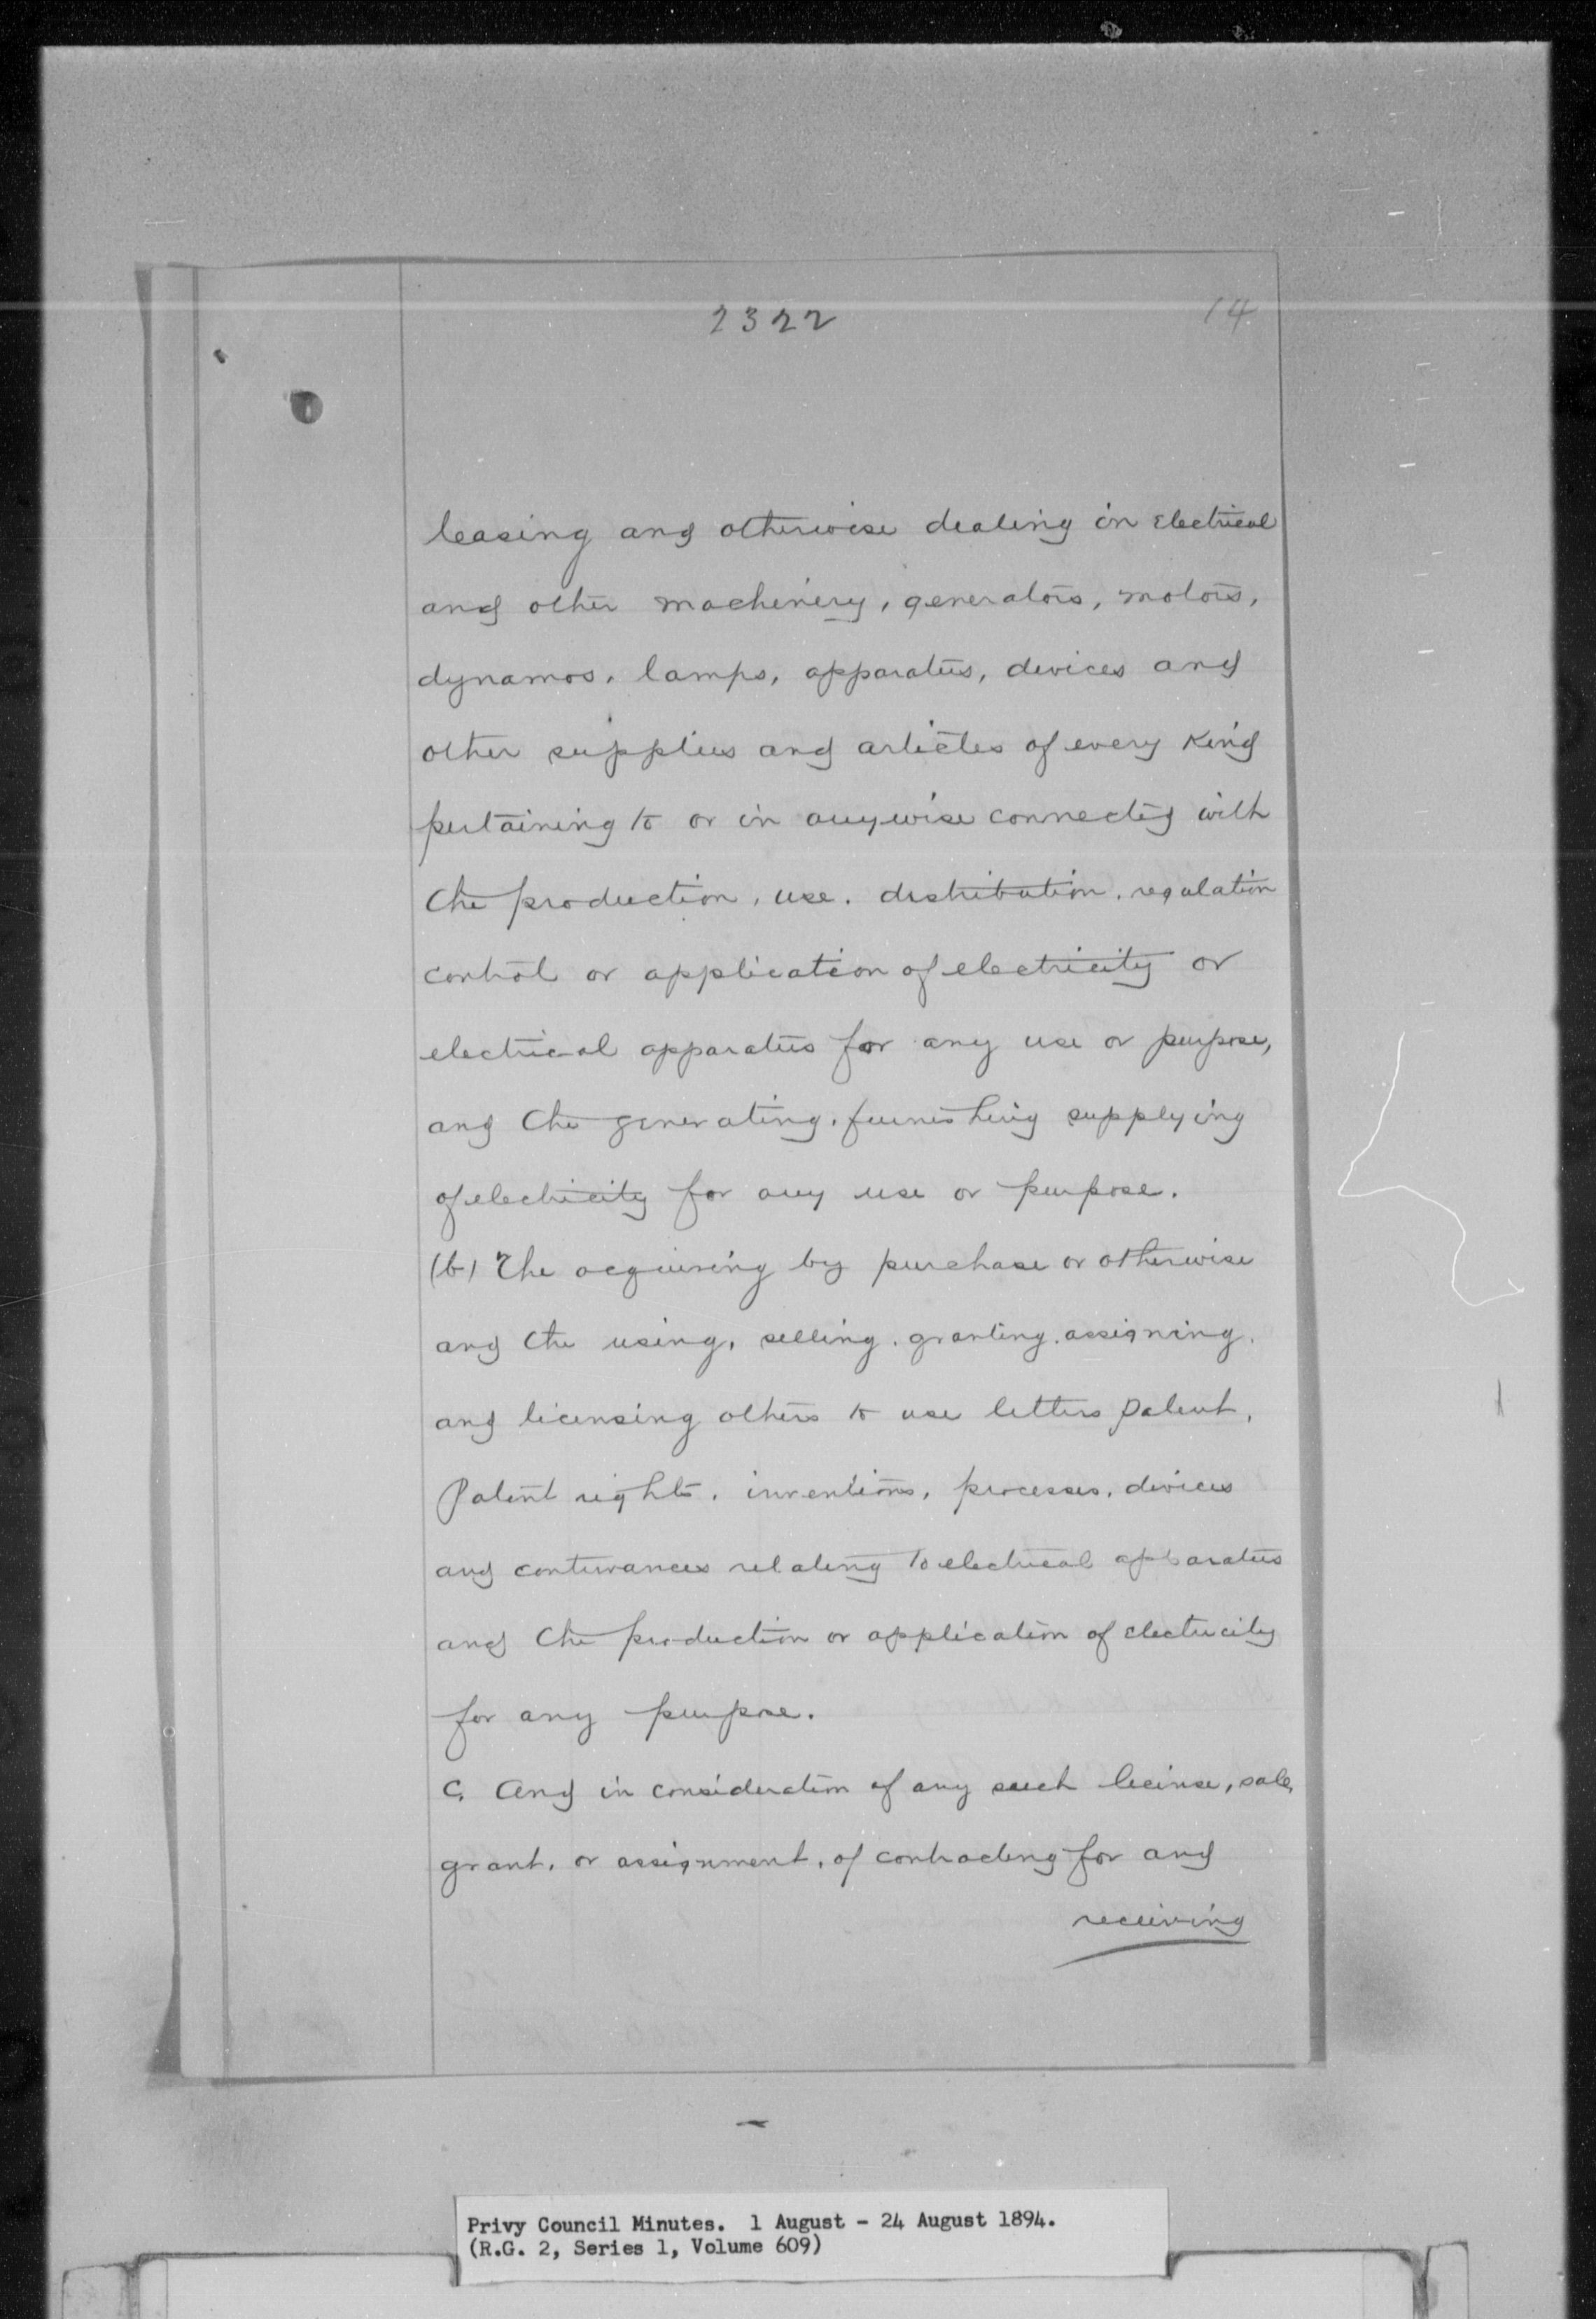 2322
14
leasing and otherwise dealing in Electrical
and other machinery, generators, motors,
dynamos, lamps, apparatus, devices and
other supplies and articles of every kind
pertaining to or in anywise connected with
the production, use, distribution, regulation
control or application of electricity or
electrical apparatus for any use or purpose,
and the generating, furnishing supplying
of electricity for any use or purpose.
(b) The acquiring by purchase or otherwise
and the using, selling, granting, assigning,
and licensing others to use letters patent,
Patent rights, inventions, processes, devices
and contrivances relating to electrical apparatus
and the production or application of electricity
for any purpose.
C. And in consideration of any such license, sale,
grant, or assignment, of contracting for and
receiving
Privy Council Minutes. 1 August - 24 August 1894.
(R.G. 2, Series 1, Volume 609)